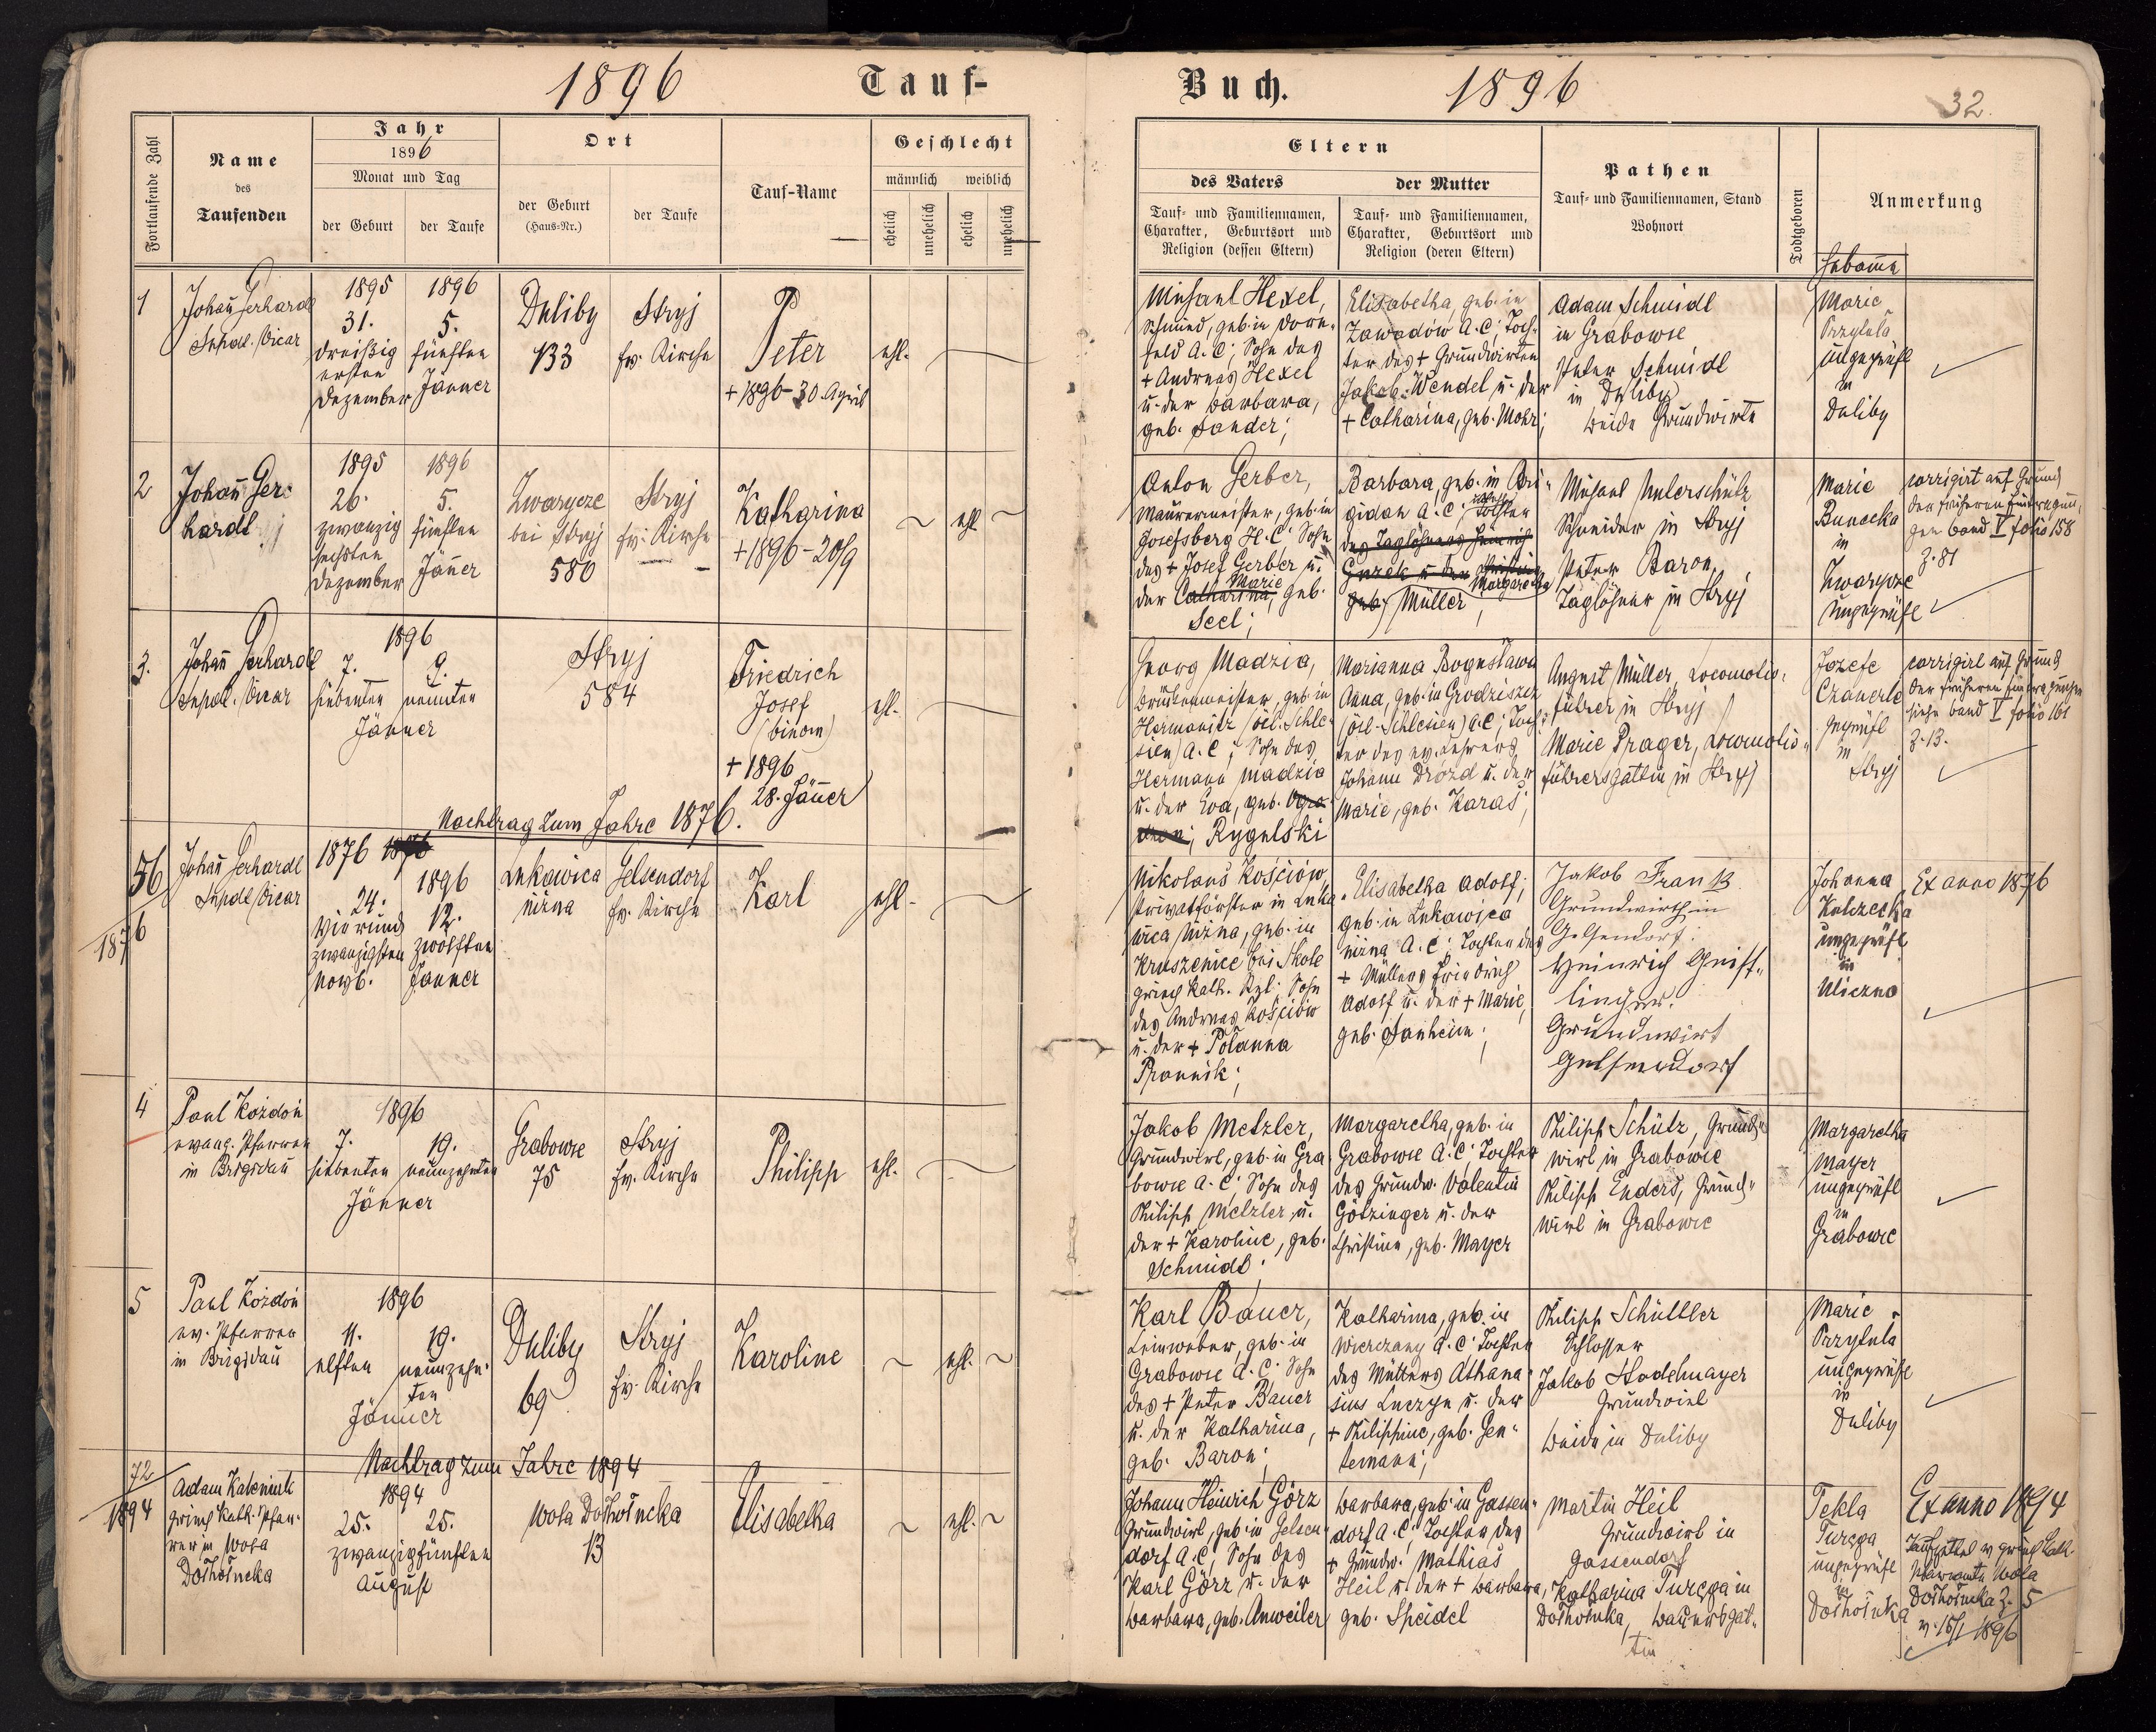 1896 Tauf-
Fortlaufende Zahl
Name
des
Taufenden
Jahr
1896
Monat und Tag
der Geburt
der Taufe
Ort
der Geburt
(Haus-Nr.)
der Taufe
Tauf-Name
Geschlecht
männlich weiblich
ehelich
unehelich
ehelich
unehelich
1
Johañ Gerhardt
Supdt. Vicar
1895
31.
dreißig
ersten
Dezember
1896
5.
fünften
Jänner
Duliby
133
Stryj
ev. Kirche
Peter
+ 1896 - 30. April
ehl.
2
Johañ Ger-
hardt
1895
26.
zwanzig
sechsten
Dezember
1896
5.
fünften
Jäñer
Zwarycze
bei Stryj
580
Stryj
ev. Kirche
Katharina
+ 1896 - 20/9
ehl
3.
Johañ Gerhardt
Supdt. Vicar
1896
7.
siebenten
9.
neunten
Jänner
Stryj
584
Friedrich
Josef
(binom)
+ 1896
28. Jäñer
ehl.
Nachtrag zum Jahre 1876.
56
1876
Johañ Gerhardt
Supdt. Vicar
1876 1876
24.
Vierund
zwanzigsten
Novb.
1896
12.
zwölften
Jänner
Lukawica
nizna
Gelsendorf
ev. Kirche
Karl
ehl.
4
Paul Kozdoń
evang. Pfarrer
in Brigidau
1896
7.
siebenten
19.
neunzehnten
Jänner
Grabowce
75
Stryj
ev. Kirche
Philipp
ehl.
5
Paul Kozdoń
ev. Pfarrer
in Brigidau
1896
11.
elften
19.
neunzehn-
ten
Jänner
Duliby
69
Stryj
ev. Kirche
Karoline
ehl.
Nachtrag zum Jahre 1894
72
1894
Adam
griech. kath. Pfar-
rer in Wola
Dołhołucka
1894
25. 25.
zwanzigfünften
August
Wola Dołhołucka
13
Elisabetha
ehl.
Buch. 1896
32.
Eltern
des Vaters
Tauf- und Familiennamen,
Charakter, Geburtsort und
Religion (dessen Eltern)
der Mutter
Tauf- und Familiennamen,
Charakter, Geburtsort und
Religion (deren Eltern)
Pathen
Tauf- und Familiennamen, Stand
Wohnort
Todtgeboren
Anmerkung
Hebamme
Michael Hexel,
Schmied, geb. in Dorn-
feld A. C; Sohn des
+ Andreas Hexel
u. der Barbara,
geb. Sander;
Elisabetha, geb. in
Zawadów A. C; Toch-
ter des + Grundwirten
Jakob Wendel u. der
+ Catharina, geb. Mohr;
Adam Schmidt
in Grabowce
Peter Schmidt
in Duliby
beide Grundwirte
Marie
Przytuła
ungeprüft
in
Duliby
Anton Gerber,
Maurermeister, geb. in
Josefsberg H. C. Sohn
des + Josef Gerber u.
der Catharina, geb.
Marie
Seel;
Barbara, geb. in Bri-
gidau A. C; Tochter
des Taglöhners Heinrich
Guzek u. der Christine
Margaretha
geb. Müller;
Michael Unterschütz
Schneider in Stryj
Peter Baron,
Taglöhner in Stryj
Marie
Bunecka
in
Zwarycze
ungeprüft
corrigirt auf Grund
der früheren Eintragun-
gen Band V folio 158
Z. 81
Georg Madzia,
Brückenmeister, geb. in
Hermanitz (öst. Schle-
sien) A. C; Sohn des
Hermann Madzia
u. der Eva, geb.
Rygulski
Marianna Bogusława
Anna, geb. in Grodziszcz
(öst. Schlesien) A C; Toch-
ter des ev. Lehrers
Johann Drozd u. der
Marie, geb. Karaś;
August Müller, Locomotiv-
führer in Stryj
Marie Prager, Locomotiv-
führersgattin in Stryj
Jozefe
geprüft
in
Stryj
corrigirt auf Grund
der früheren Eintragungen
siehe Band V folio 161
Z. 13.
Nikolaus Kościów,
Privatförster in Luka-
wica nizna, geb. in
Kruszenice bei Skole
griech. kath. Rel: Sohn
des Andreas Kościów
u. der + Polanna
Prannik;
Elisabetha Adolf;
geb. in Lukawica
nizna A. C; Tochter des
+ Müllers Friedrich
Adolf u. der + Marie,
geb. Sanheim;
Jakob Frank
Grundwirth in
Gelsendorf:
Heinrich Greiff-
linger.
Grundwirt
Gelsendorf
Johanna
Kulczecka
ungeprüft
in
Uliczno
Ex anno 1876
Jakob Metzler,
Grundwirt, geb. in Gra-
bowce A. C; Sohn des
Philipp Metzler u.
der + Karoline, geb.
Schmidt;
Margaretha, geb. in
Grabowce A. C; Tochter
des Grundw. Valentin
Götzinger u. der
Christine, geb. Mayer
Philipp Schütz, Grund-
wirt in Grabowce
Philipp Enders, Grund-
wirt in Grabowce
Margaretha
Mayer
ungeprüft
in
Grabowce
Karl Bauer,
Leinweber, geb. in
Grabowce A. C. Sohn
des + Peter Bauer
u. der Katharina,
geb. Baron;
Katharina, geb. in
Wierczany A. C. Tochter
des Müllers Athana-
sius Luczyn u. der
+ Philippine, geb. Gen-
temann;
Philipp Schüttler
Schlosser
Jakob Stadelmayer
Grundwirt
beide in Duliby
Marie
Przytuła
ungeprüft
in
Duliby
Johann Heinrich Görz
Grundwirt, geb. in Gelsen-
dorf A. C; Sohn des
Karl Görz u. der
Barbara, geb. Anweiler
Barbara, geb. in Gassen-
dorf A. C; Tochter des
+ Grundw. Mathias
Heil u. der + Barbara,
geb. Speidel
Martin Heil
Grundwirt in
Gassendorf
Katharina Turczga in
Dołhołuka, Bauersgat-
tin
Tekla
Turczga
ungeprüft
in
Dołhołuka
Ex anno 1894
Taufzettel v griech. kath.
Pfarramte Wola
Dołhołucka Z. 5
v. 15/1 1896